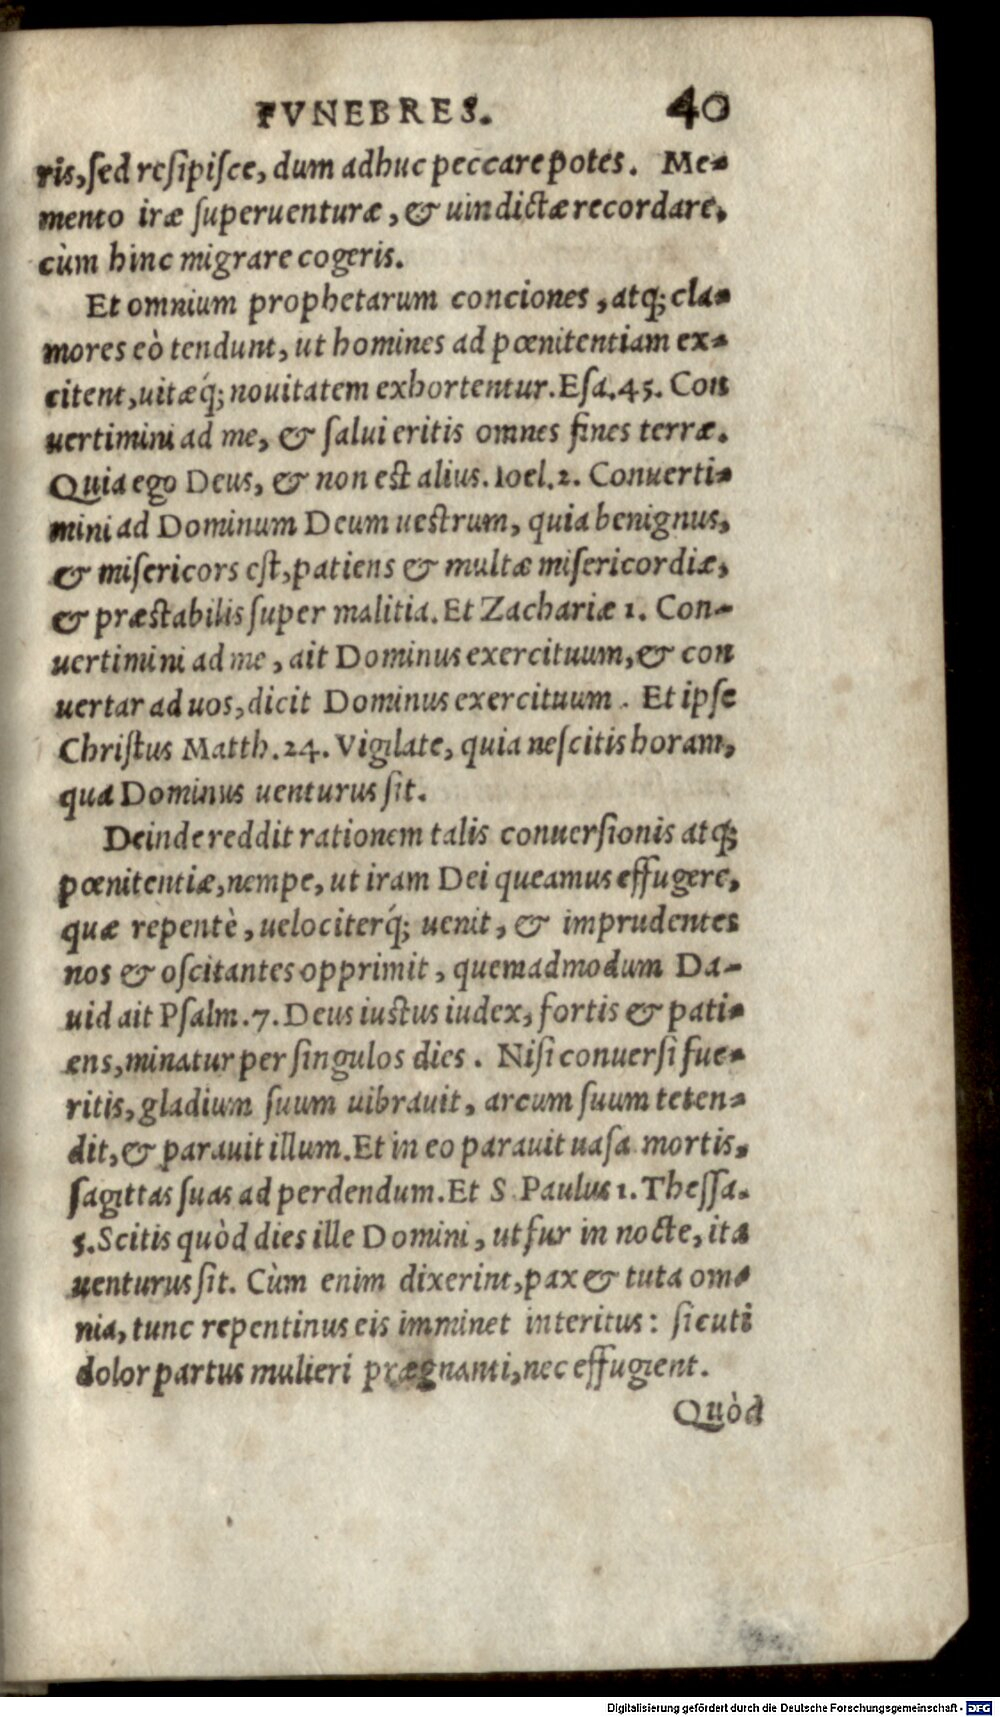 FVNEBRES. 40
ris, sed resipisce, dum adhuc peccare potes. Me-
mento iræ superuenturæ, & uindictæ recordare,
cùm hinc migrare cogeris.
Et omnium prophetarum conciones, atq́; cla-
mores eò tendunt, ut homines ad pœnitentiam ex-
citent, uitæq́; nouitatem exhortentur. Esa. 45. Con
uertimini ad me, & salui eritis omnes fines terræ.
Quia ego Deus, & non est alius. Ioel. 2. Conuerti-
mini ad Dominum Deum uestrum, quia benignus,
& misericors est, patiens & multæ misericordiæ,
& præstabilis super malitia. Et Zachariæ 1. Con-
uertimini ad me, ait Dominus exercituum, & con
uertar ad uos, dicit Dominus exercituum. Et ipse
Christus Matth. 24. Vigilate, quia nescitis horam,
qua Dominus uenturus sit.
Deinde reddit rationem talis conuersionis atq;
pœnitentiæ, nempe, ut iram Dei queamus effugere,
quæ repentè, uelociterq́; uenit, & imprudentes
nos & oscitantes opprimit, quemadmodum Da-
uid ait Psalm. 7. Deus iustus iudex, fortis & pati-
ens, minatur per singulos dies. Nisi conuersi fue-
ritis, gladium suum uibrauit, arcum suum teten-
dit, & parauit illum. Et in eo parauit uasa mortis,
sagittas suas ad perdendum. Et S. Paulus 1. Thessa.
5. Scitis quòd dies ille Domini, ut fur in nocte, ita
uenturus sit. Cùm enim dixerint, pax & tuta om-
nia, tunc repentinus eis imminet interitus: sicuti
dolor partus mulieri prægnanti, nec effugient.
Quòd
Digitalisierung gefördert durch die Deutsche Forschungsgemeinschaft - DFG